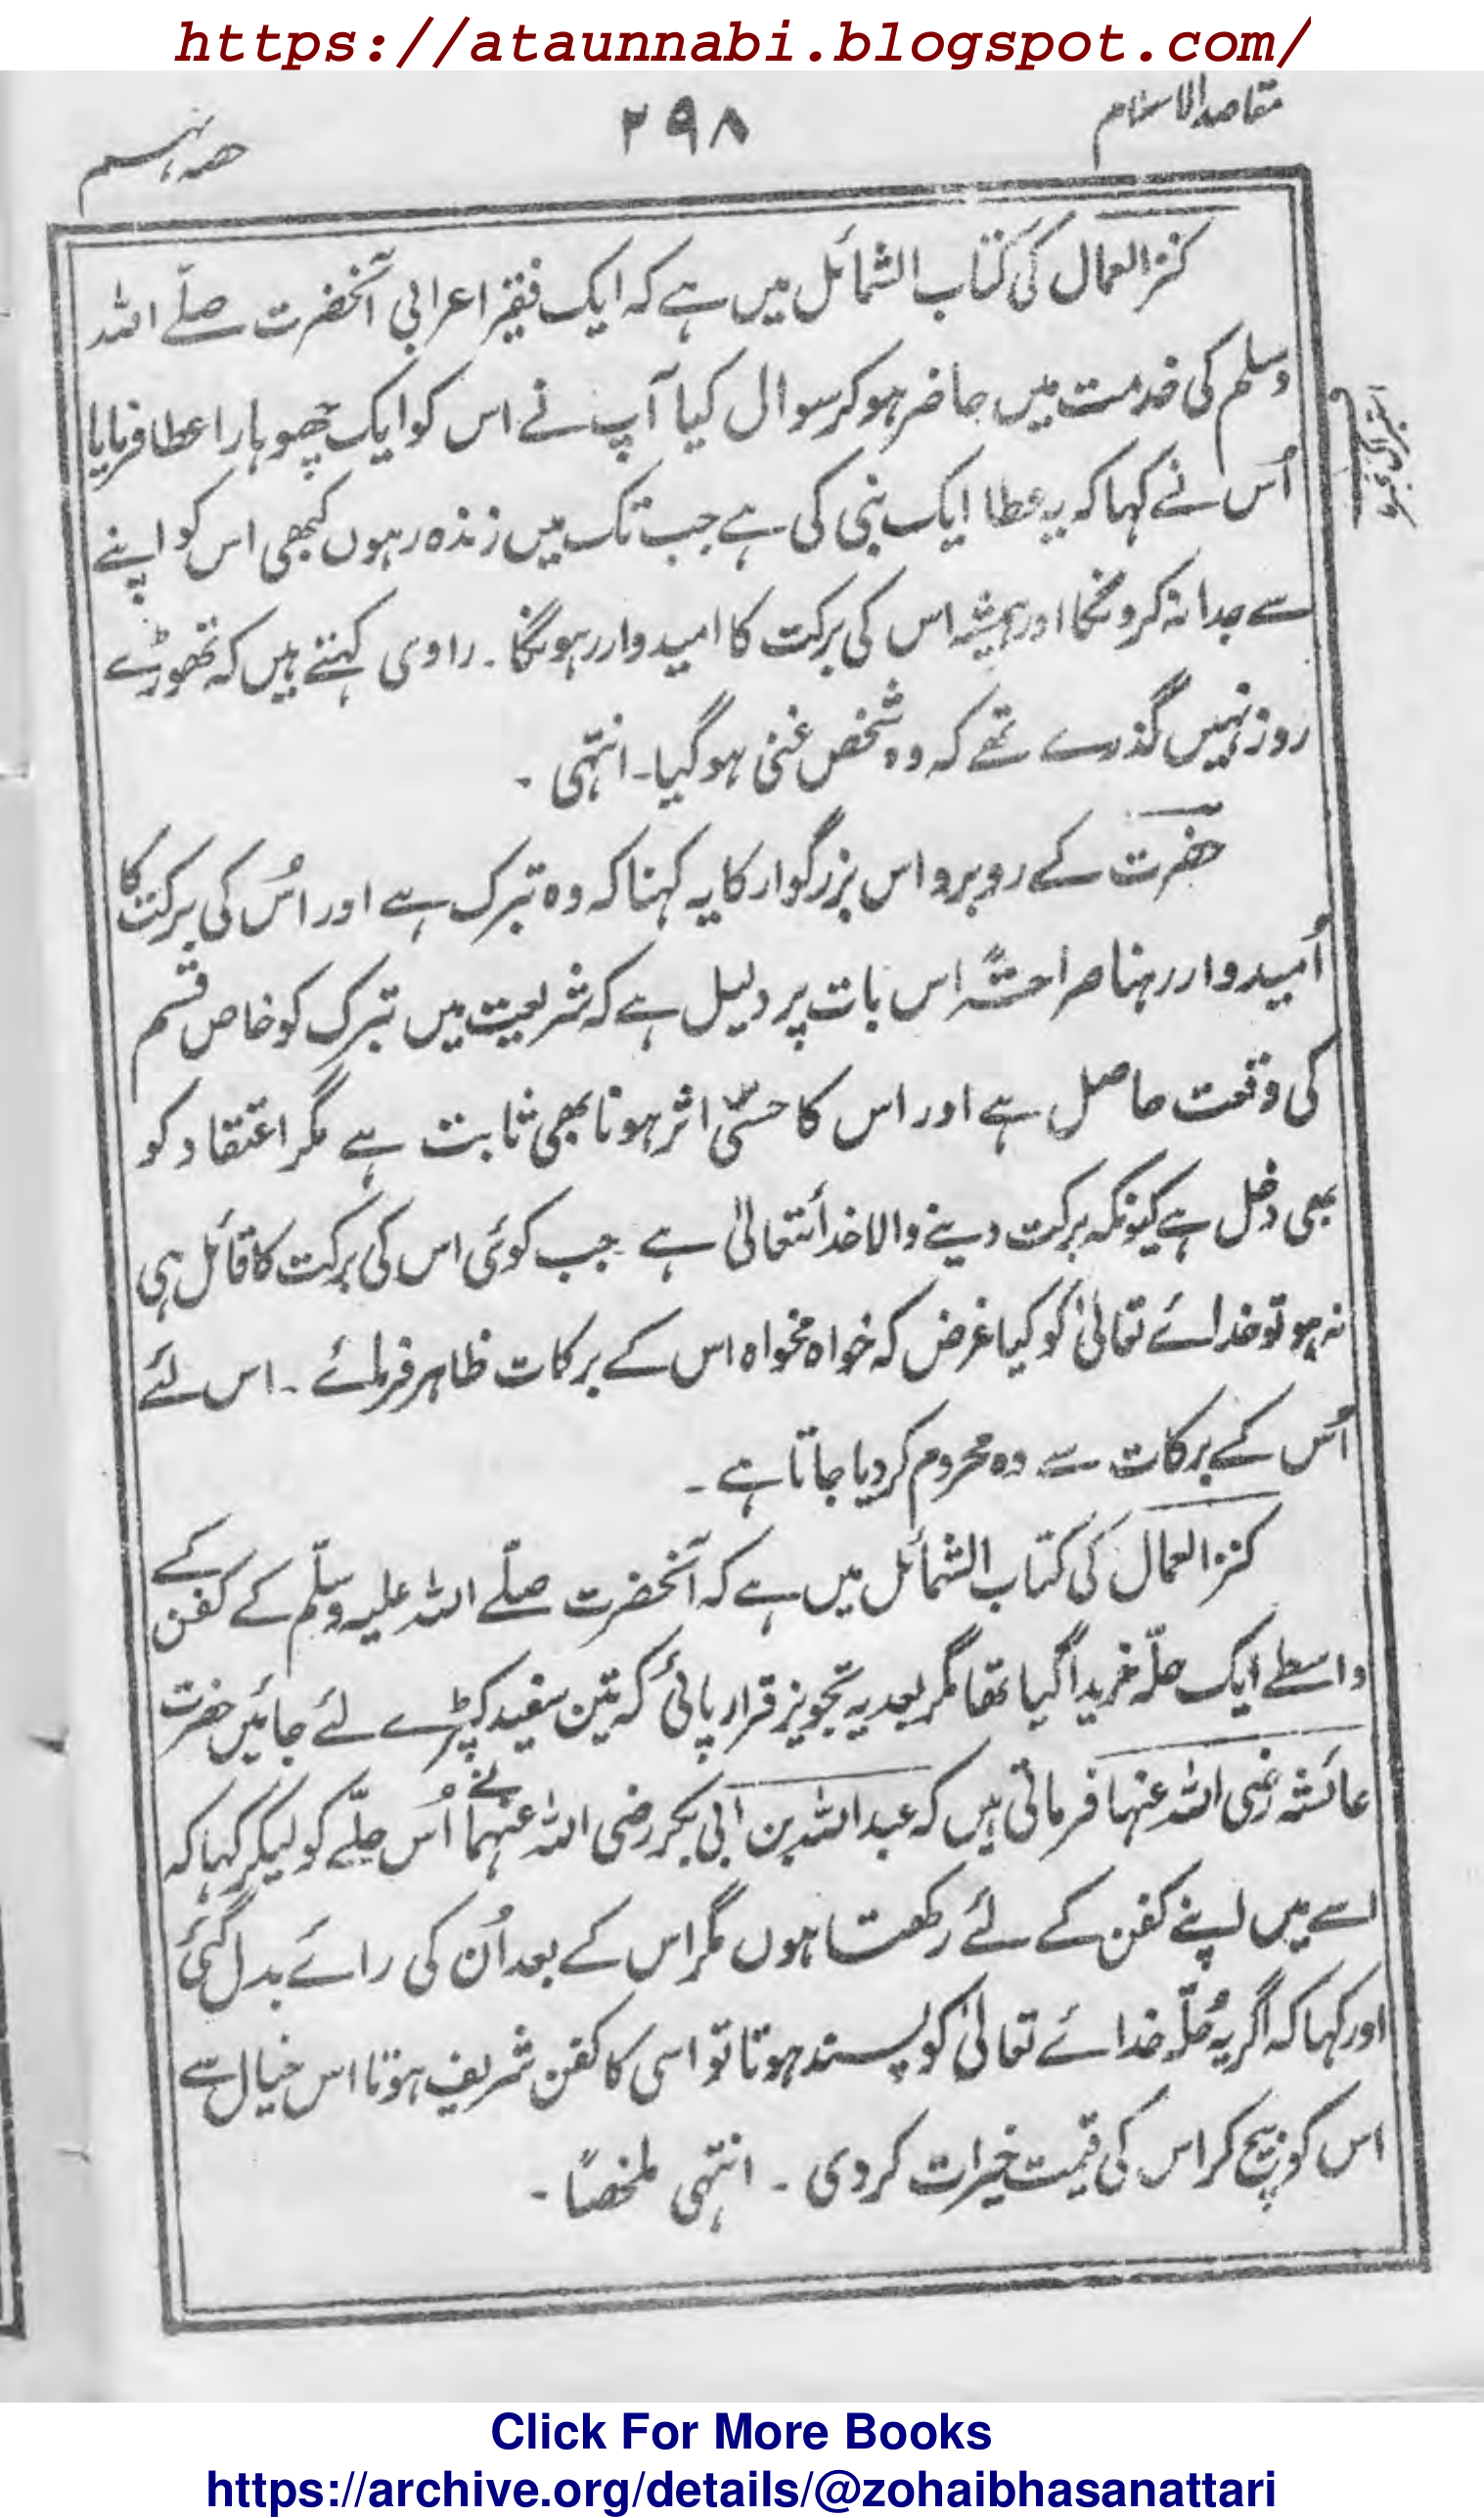 https://ataunnabi.blogspot.com/
مقاصد الاسلام
۲۹۸
حصہ نہم
کنز العمال کی کتاب الشمائل میں ہے کہ ایک فقیر اعرابی آنحضرت صلے اللہ
وسلم کی خدمت میں حاضر ہو کر سوال کیا آپ نے اس کو ایک چھوہارا عطا فرمایا
اُس نے کہا کہ یہ عطا ایک نبی کی ہے جب تک میں زندہ رہوں کبھی اس کو اپنے
سے جدا نہ کرونگا اور ہمیشہ اس کی برکت کا امیدوار رہونگا ۔ راوی کہتے ہیں کہ تھوڑے
روز نہیں گذرے تھے کہ وہ شخص غنی ہوگیا۔ انتہی ۔
حضرت کے روبرو اس بزرگوار کا یہ کہنا کہ وہ تبرک ہے اور اُس کی برکت کا
اُمیدوار رہنا صراحتًہ اس بات پر دلیل ہے کہ شریعت میں تبرک کو خاص قسم
کی وقعت حاصل ہے اور اس کا حسّی اثر ہونا بھی ثابت ہے مگر اعتقاد کو
بھی دخل ہے کیونکہ برکت دینے والا خدائتعالیٰ ہے جب کوئی اس کی برکت کا قائل ہی
نہ ہو تو خدائے تعالیٰ کو کیا غرض کہ خواہ مخواہ اس کے برکات ظاہر فرمائے ۔ اس لئے
اُس کے برکات سے وہ محروم کردیا جاتا ہے ۔
کنز العمال کی کتاب الشمائل میں ہے کہ آنحضرت صلّے اللہ علیہ وسلّم کے کفن کے
واسطے ایک حلّہ خریدا گیا تھا مگر بعد یہ تجویز قرار پائی کہ تین سفید کپڑے لئے جائیں حضرت
عائشہ رضی اللہ عنہا فرماتی ہیں کہ عبداللہ بن ابی بکر رضی اللہ عنہما نے اُس حلّے کو لیکر کہا کہ
اسے میں اپنے کفن کے لئے رکھتا ہوں مگر اس کے بعد اُن کی رائے بدل گئی
اور کہا کہ اگر یہ حُلّہ خدائے تعالیٰ کو پسند ہوتا تو اسی کا کفن شریف ہوتا اس خیال سے
اس کو بیچ کر اس کی قیمت خیرات کردی ۔ انتہی ملخصًا ۔
Click For More Books
https://archive.org/details/@zohaibhasanattari